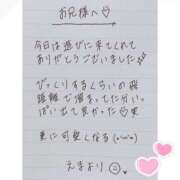 お兄様へ♡
今日は遊びに来てくれて
ありがとうございました
びっくりするくらいの飛
距離で溜まってた分いっ
ぱい出て良かった
更に可愛くなる(•ᴗ•)
えまより☺